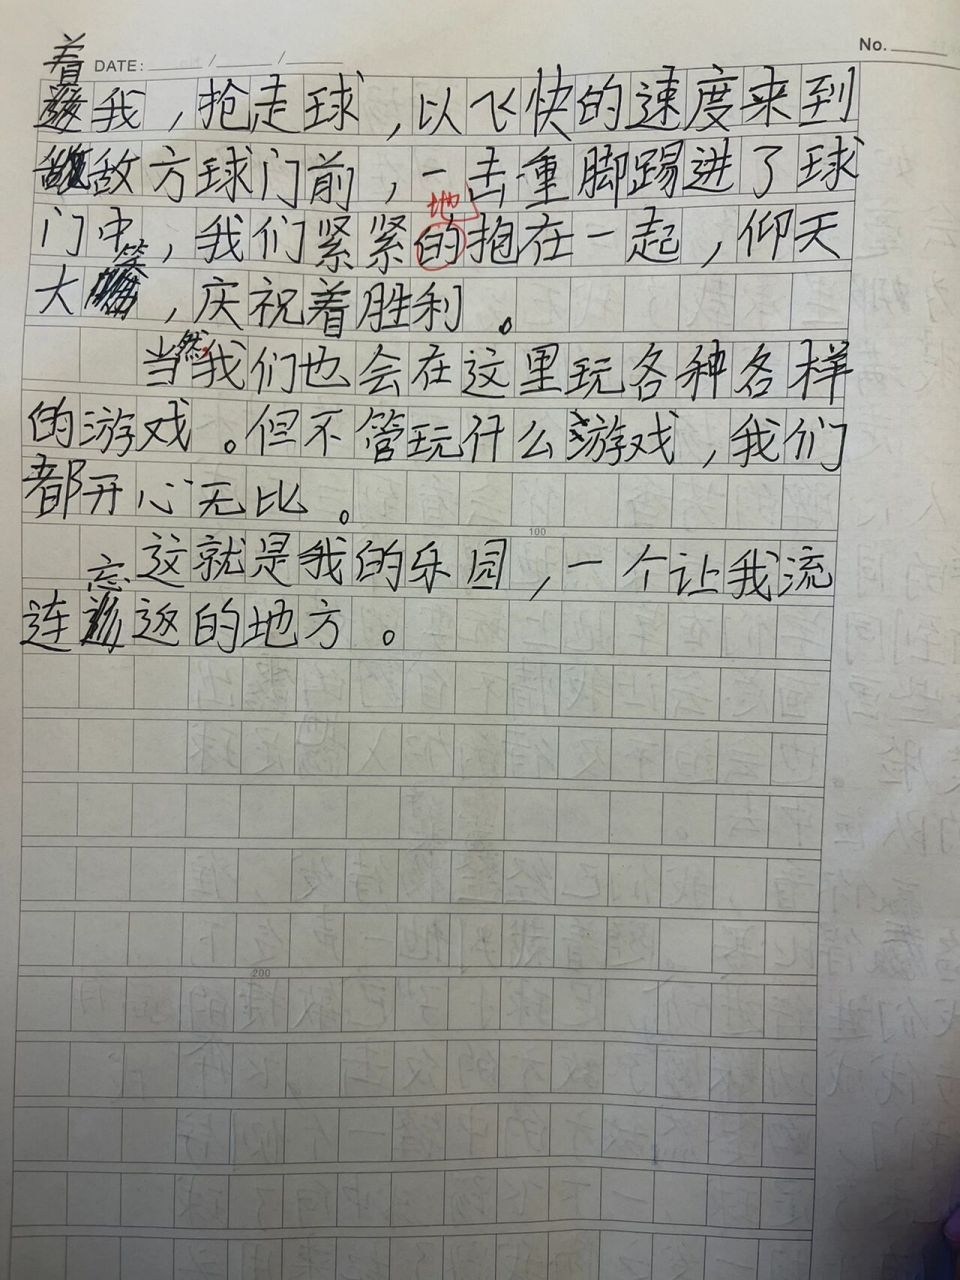 No.
着 DATE: / /
我，抢走球，以飞快的速度来到
敌方球门前，一击重脚踢进了球
地
门中，我们紧紧的抱在一起，仰天
大笑，庆祝着胜利。
当然我们也会在这里玩各种各样
的游戏。但不管玩什么游戏，我们
都开心无比。
100
这就是我的乐园，一个让我流
连忘返的地方。
200